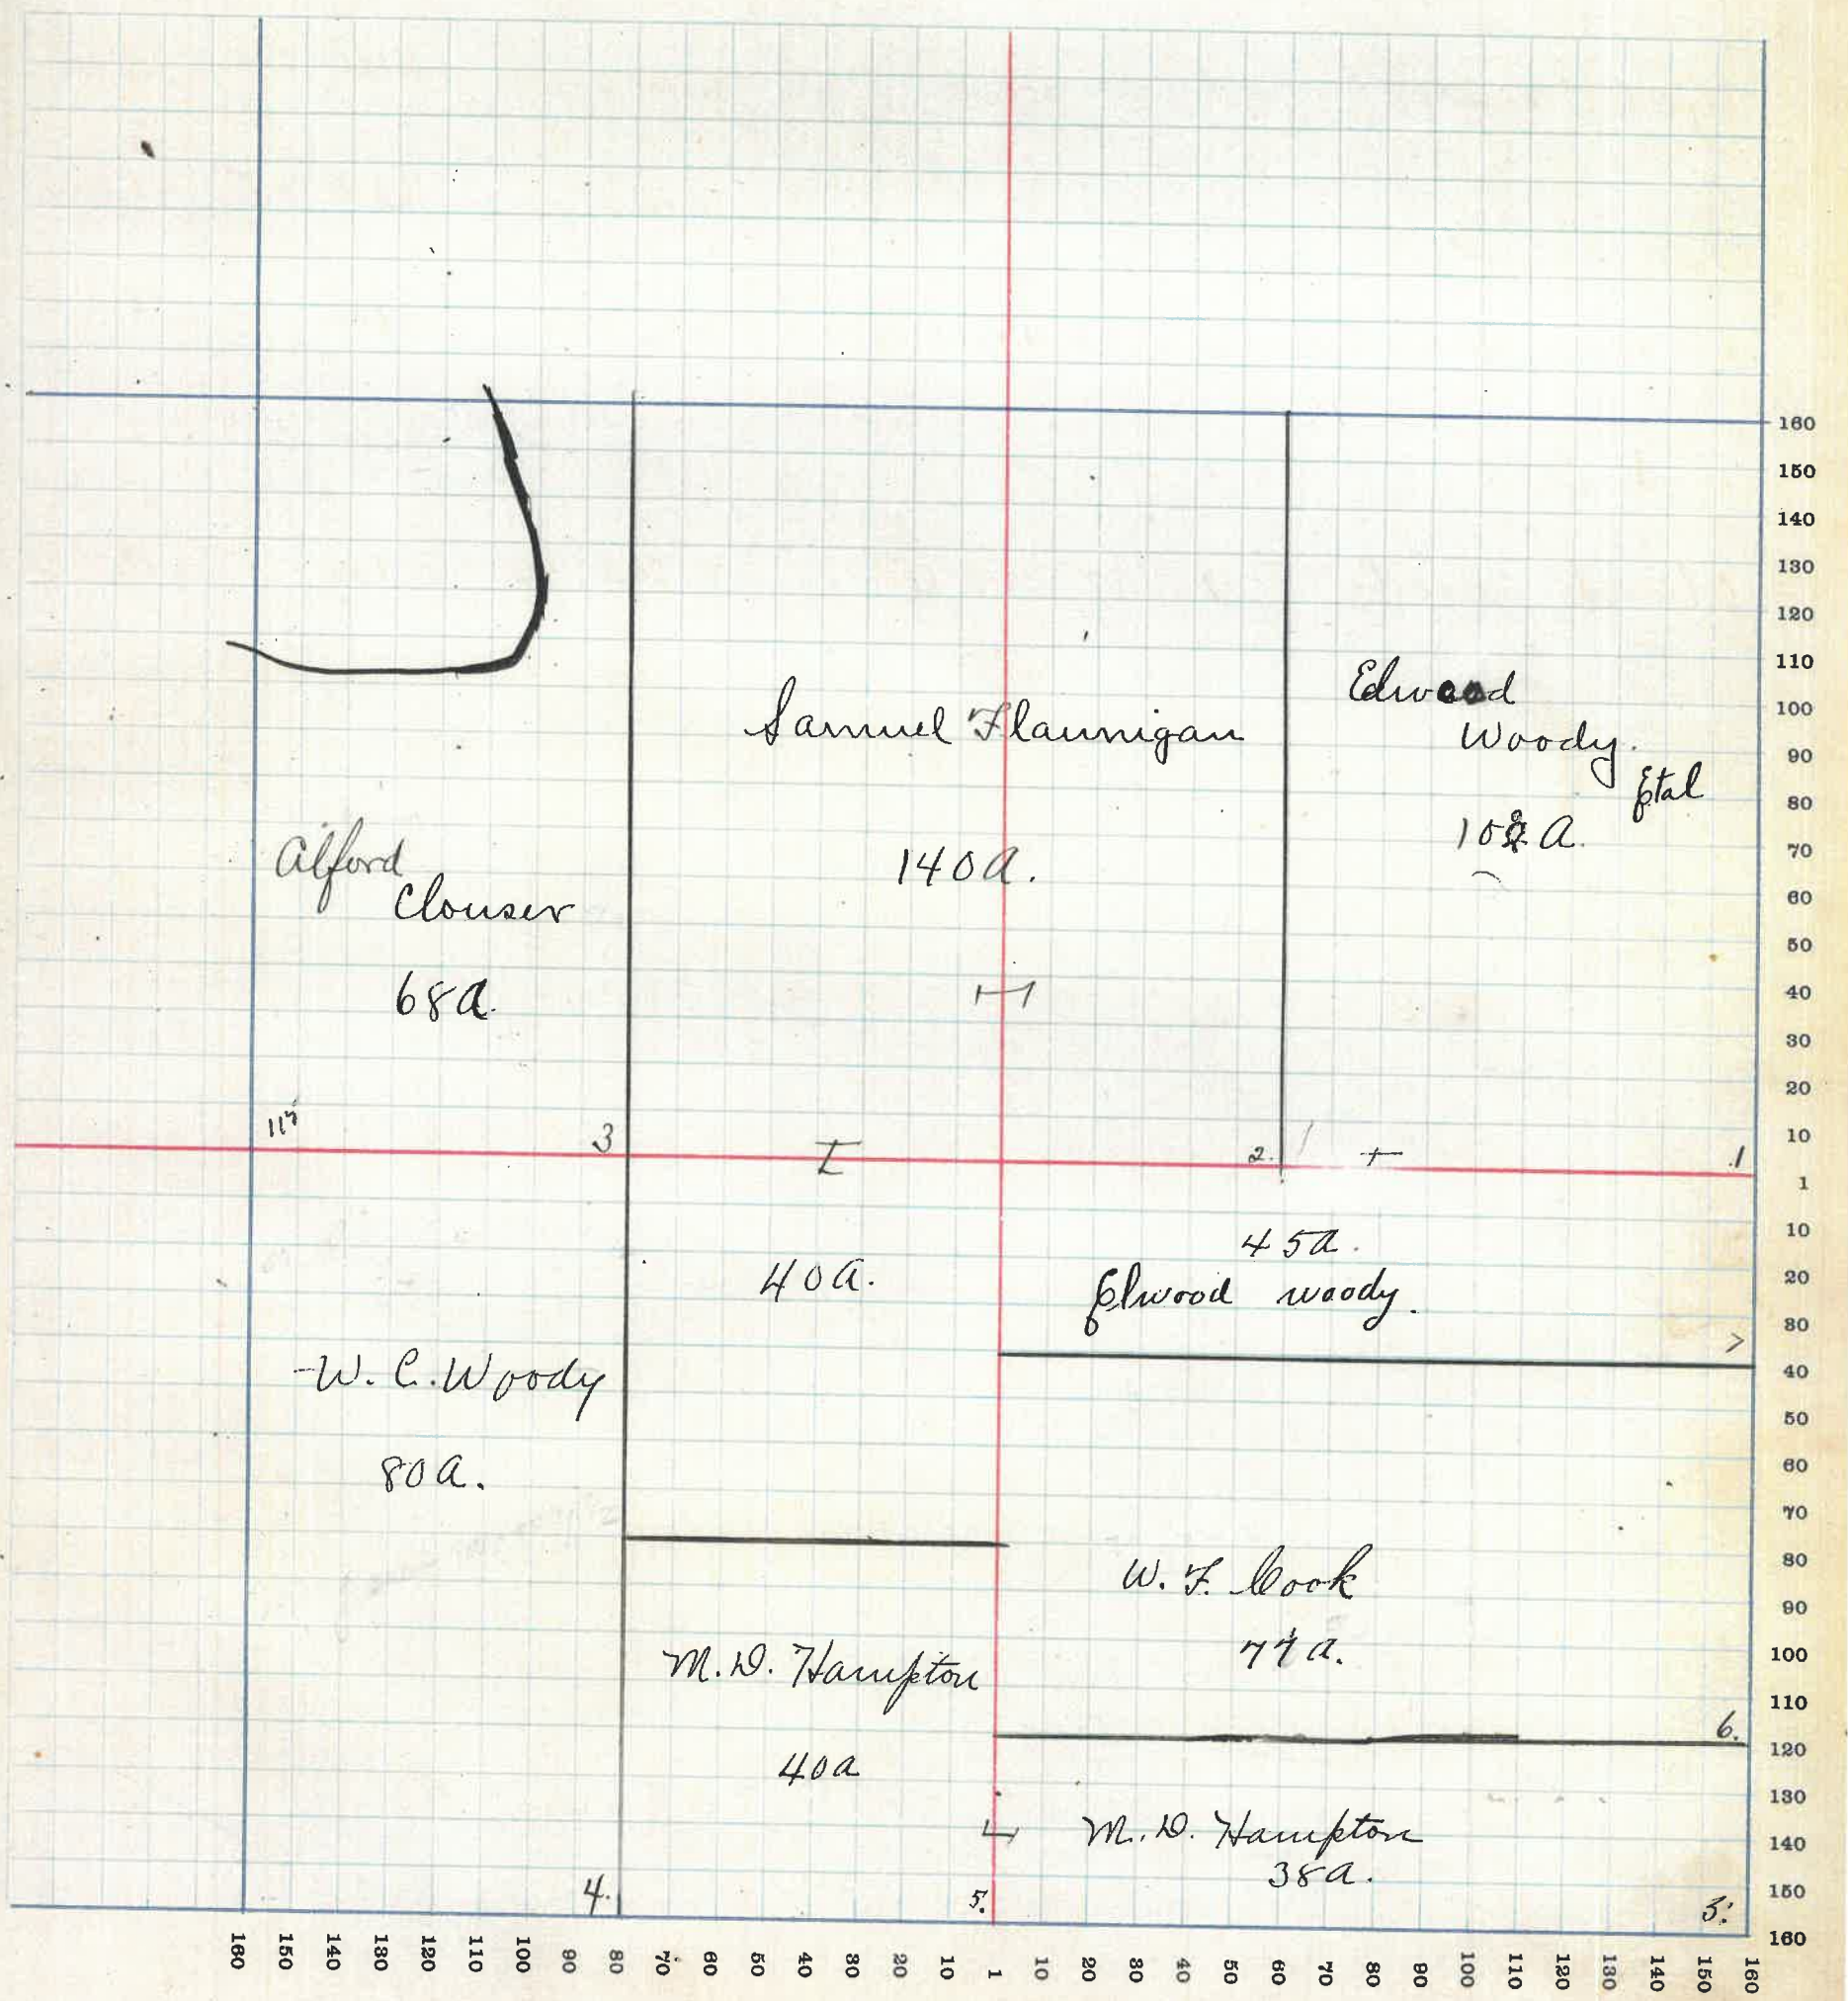 Samuel Flannigan
140 a.
Woody.
Etal
A.
Alford
Clouser
68 a.
3
2.
1
45 a.
Elwood woody.
40 a.
W. C. Woody
80 a.
7
W. F. Cook
77 a.
M. D. Hampton
40 a
6.
M. D. Hampton
38 a.
4.
5.
160
150
140
130
120
110
100
90
80
70
60
50
40
30
20
10
1
10
20
30
40
50
60
70
80
90
100
110
120
130
140
150
160
160 150 140 130 120 110 100 90 80 70 60 50 40 30 20 10 1 10 20 30 40 50 60 70 80 90 100 110 120 130 140 150 160